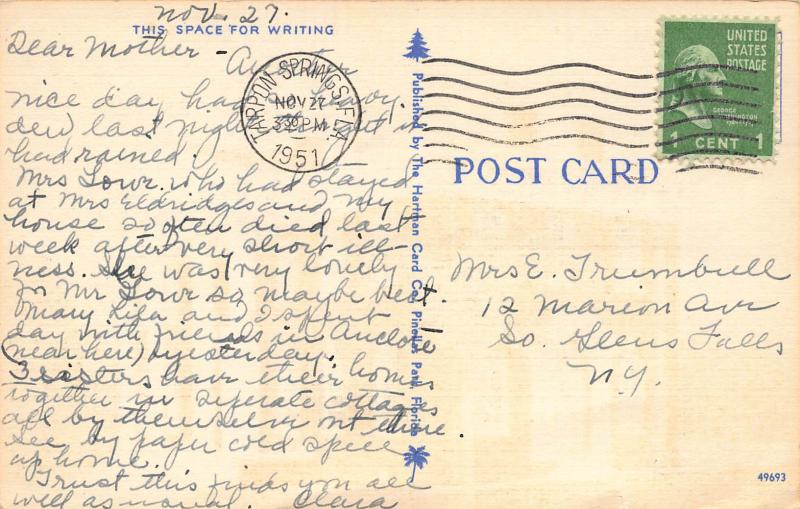 Nov. 27.
THIS SPACE FOR WRITING
Dear Mother - Another
nice day had heavy
dew last night
had rained.
Mrs Lowr. who had stayed
at Mrs Eldridges and my
house so often died last
week after very short ill-
ness. She was very lonely
Mr Lowr so maybe best.
Mary Lila and I spent
day with friends in Anclote
(near here) yesterday.
3 sisters have their homes
together in seperate cottages
all by themselves
see by paper cold spell
up home.
Trust this finds you all
well as usual. Clara
TARPON SPRINGS, FLA.
NOV 27
330 PM
1951
UNITED
STATES
POSTAGE
GEORGE
WASHINGTON
1 CENT 1
Published by The Hartman Card Co., Pinellas Park, Florida
POST CARD
Mrs E. Trumbull
12 Marion Avr
So. Glens Falls
N.Y.
49693